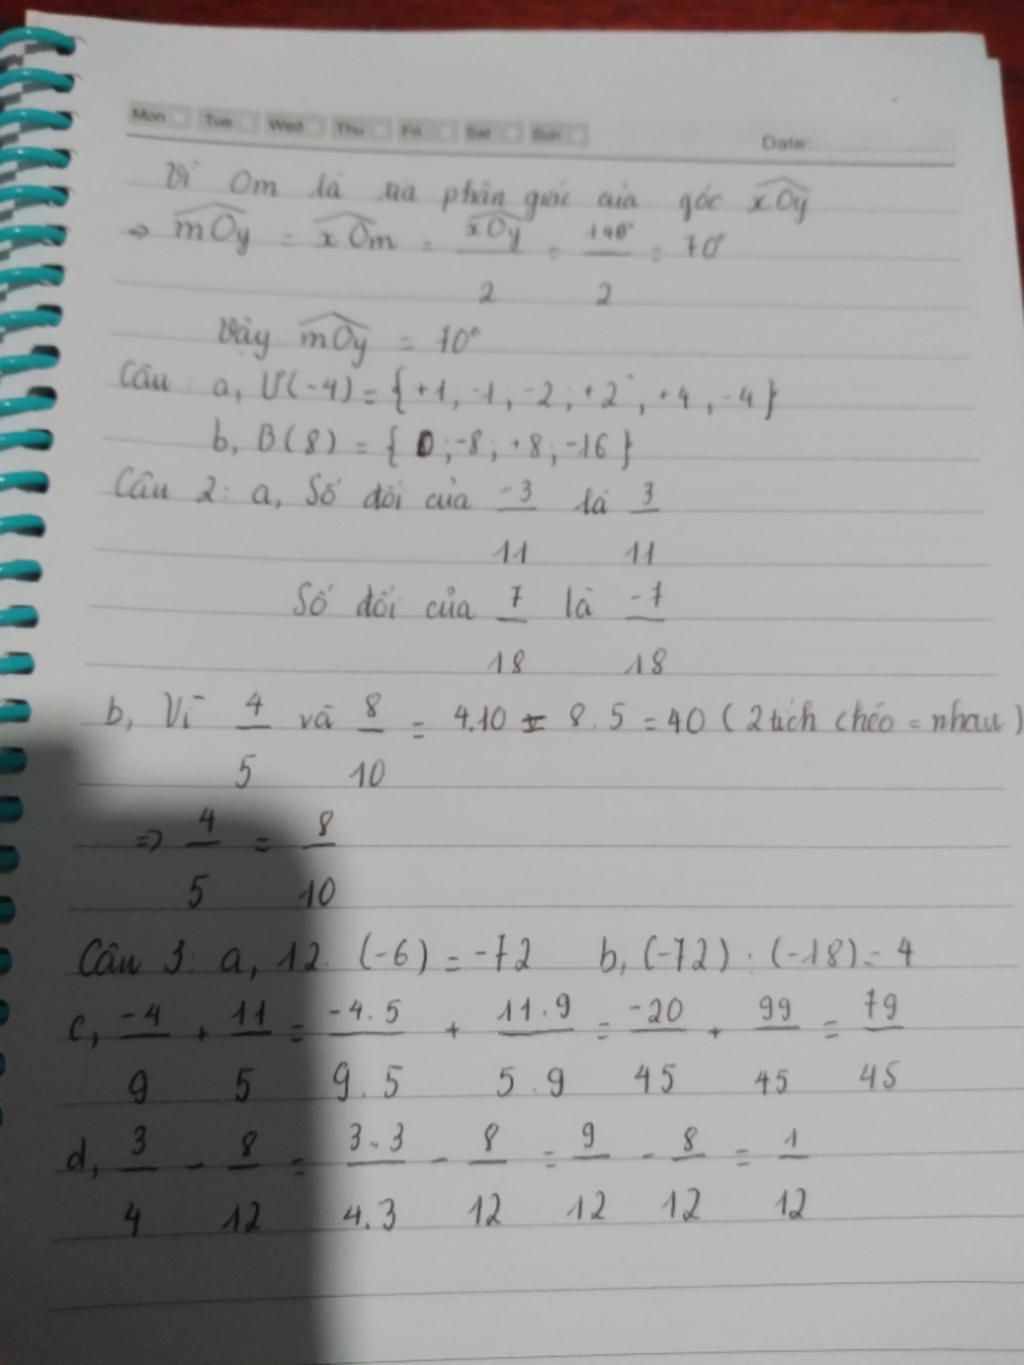 Mon Tue Wed Thu Fri Sat Sun Date
Vì Om là tia phân giác của góc xOy
=> mOy = xOm = xOy/2 = 140°/2 = 70°
Vậy mOy = 70°
Câu : a, Ư(-4) = { +1, -1, -2, +2, +4, -4 }
b, B(8) = { 0; -8; +8; -16 }
Câu 2: a, Số đối của -3/11 là 3/11
Số đối của 7/18 là -7/18
b, Vì 4/5 và 8/10 = 4.10 = 8.5 = 40 ( 2 tích chéo = nhau )
=> 4/5 = 8/10
Câu 3: a, 12. (-6) = -72 b, (-72) : (-18) = 4
c, -4/9 + 11/5 = -4.5/9.5 + 11.9/5.9 = -20/45 + 99/45 = 79/45
d, 3/4 - 8/12 = 3.3/4.3 - 8/12 = 9/12 - 8/12 = 1/12